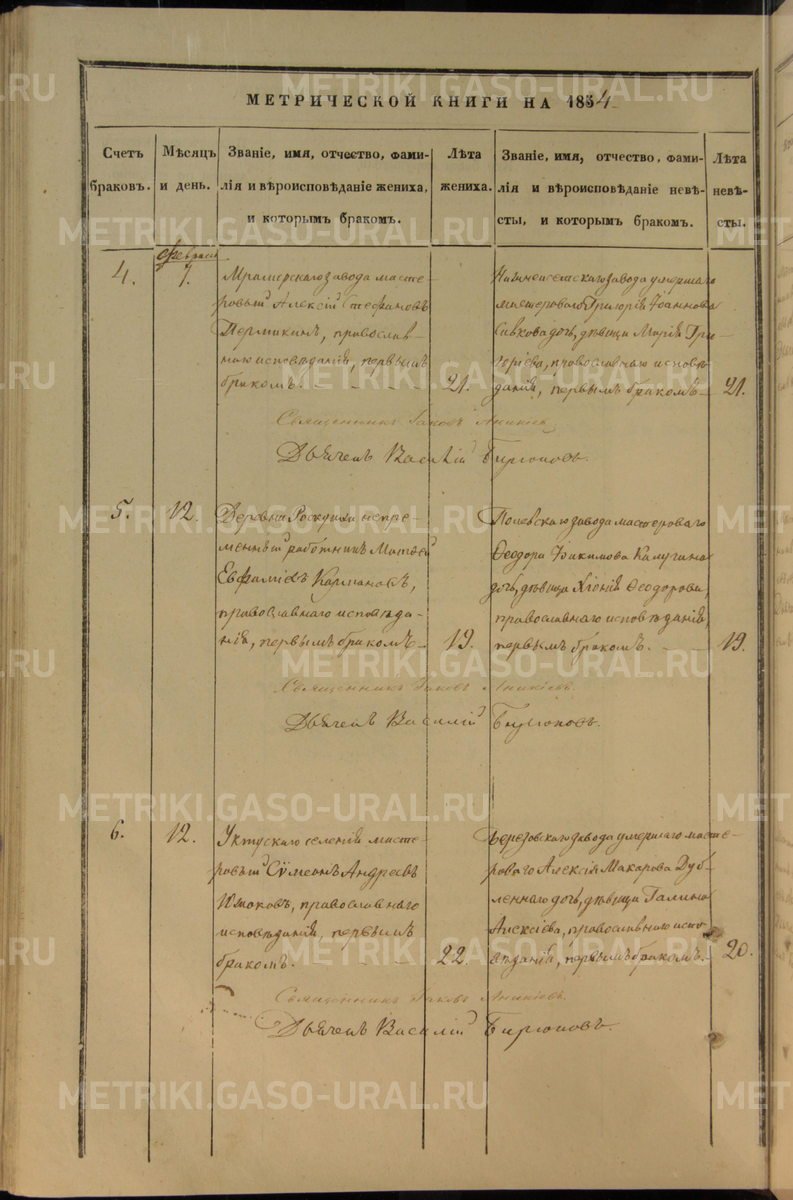 МЕТРИЧЕСКОЙ КНИГИ НА 1854
Счетъ браковъ.
Мѣсяцъ и день.
Званіе, имя, отчество, фами-
лія и вѣроисповѣданіе жениха,
и которымъ бракомъ.
Лѣта жениха.
Званіе, имя, отчество, фами-
лія и вѣроисповѣданіе невѣ-
сты, и которымъ бракомъ.
Лѣта невѣ-
сты.
4.
Февраля
7.
Мраморскаго завода масте-
ровый Алексій Стефановъ
Пермикинъ, православ-
наго исповѣданія, первымъ
бракомъ.
21.
умершаго
мастероваго Григорія Іоаннова
дочь, дѣвица Марія Гри-
горіева, православнаго исповѣ-
данія, первымъ бракомъ
21.
Священникъ Іаковъ
Дьячекъ Василій Бирюковъ.
5.
12.
Деревни непре-
менный работникъ Матѳей
Евфиміевъ Кармановъ,
православнаго исповѣда-
нія, первымъ бракомъ
19.
Полевскаго завода мастероваго
Ѳеодора Іакимова Калугина
дочь, дѣвица Хіонія Ѳеодорова,
православнаго исповѣданія,
первымъ бракомъ.
19.
Священникъ Іаковъ Аникіевъ.
Дьячекъ Василій Бирюковъ.
6.
12.
Уктусскаго селенія масте-
ровый Сѵмеонъ Андреевъ
православнаго
исповѣданія, первымъ
бракомъ.
22.
Березовскаго завода умершаго масте-
роваго Алексія Макарова Дуб-
леннаго дочь, дѣвица Галина
Алексіева, православнаго испо-
вѣданія, первымъ бракомъ.
20.
Священникъ Іаковъ Аникіевъ.
Дьячекъ Василій Бирюковъ.
METRIKI.GASO-URAL.RU